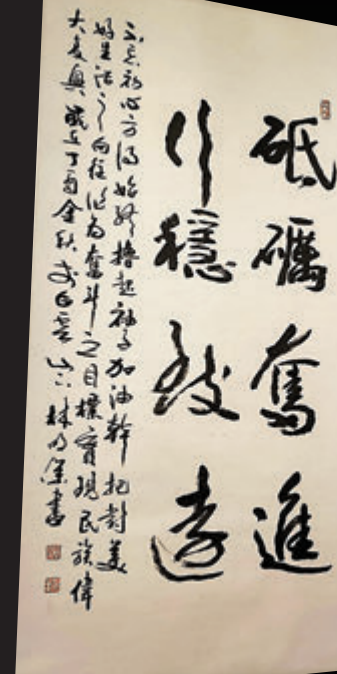 砥礪奮進
行穩致遠
不忘初心方得始終擼起袖子加油幹把對美
好生活之向往作為奮斗之目標實現民族偉
大復興 歲在丁酉金秋於白雲山下林乃深書